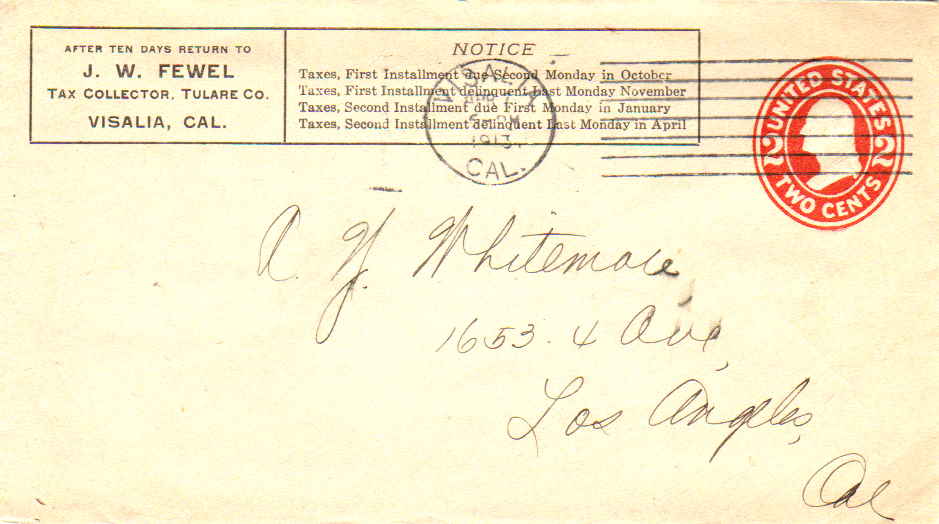 AFTER TEN DAYS RETURN TO
J. W. FEWEL
TAX COLLECTOR, TULARE CO.
VISALIA, CAL.
NOTICE
Taxes, First Installment due Second Monday in October
Taxes, First Installment delinquent Last Monday November
Taxes, Second Installment due First Monday in January
Taxes, Second Installment delinquent Last Monday in April
VISALIA
PM
1913
CAL.
UNITED STATES
2 2
TWO CENTS
A. Y. Whitemore,
1653. 4 Ave,
Los Angeles,
Cal